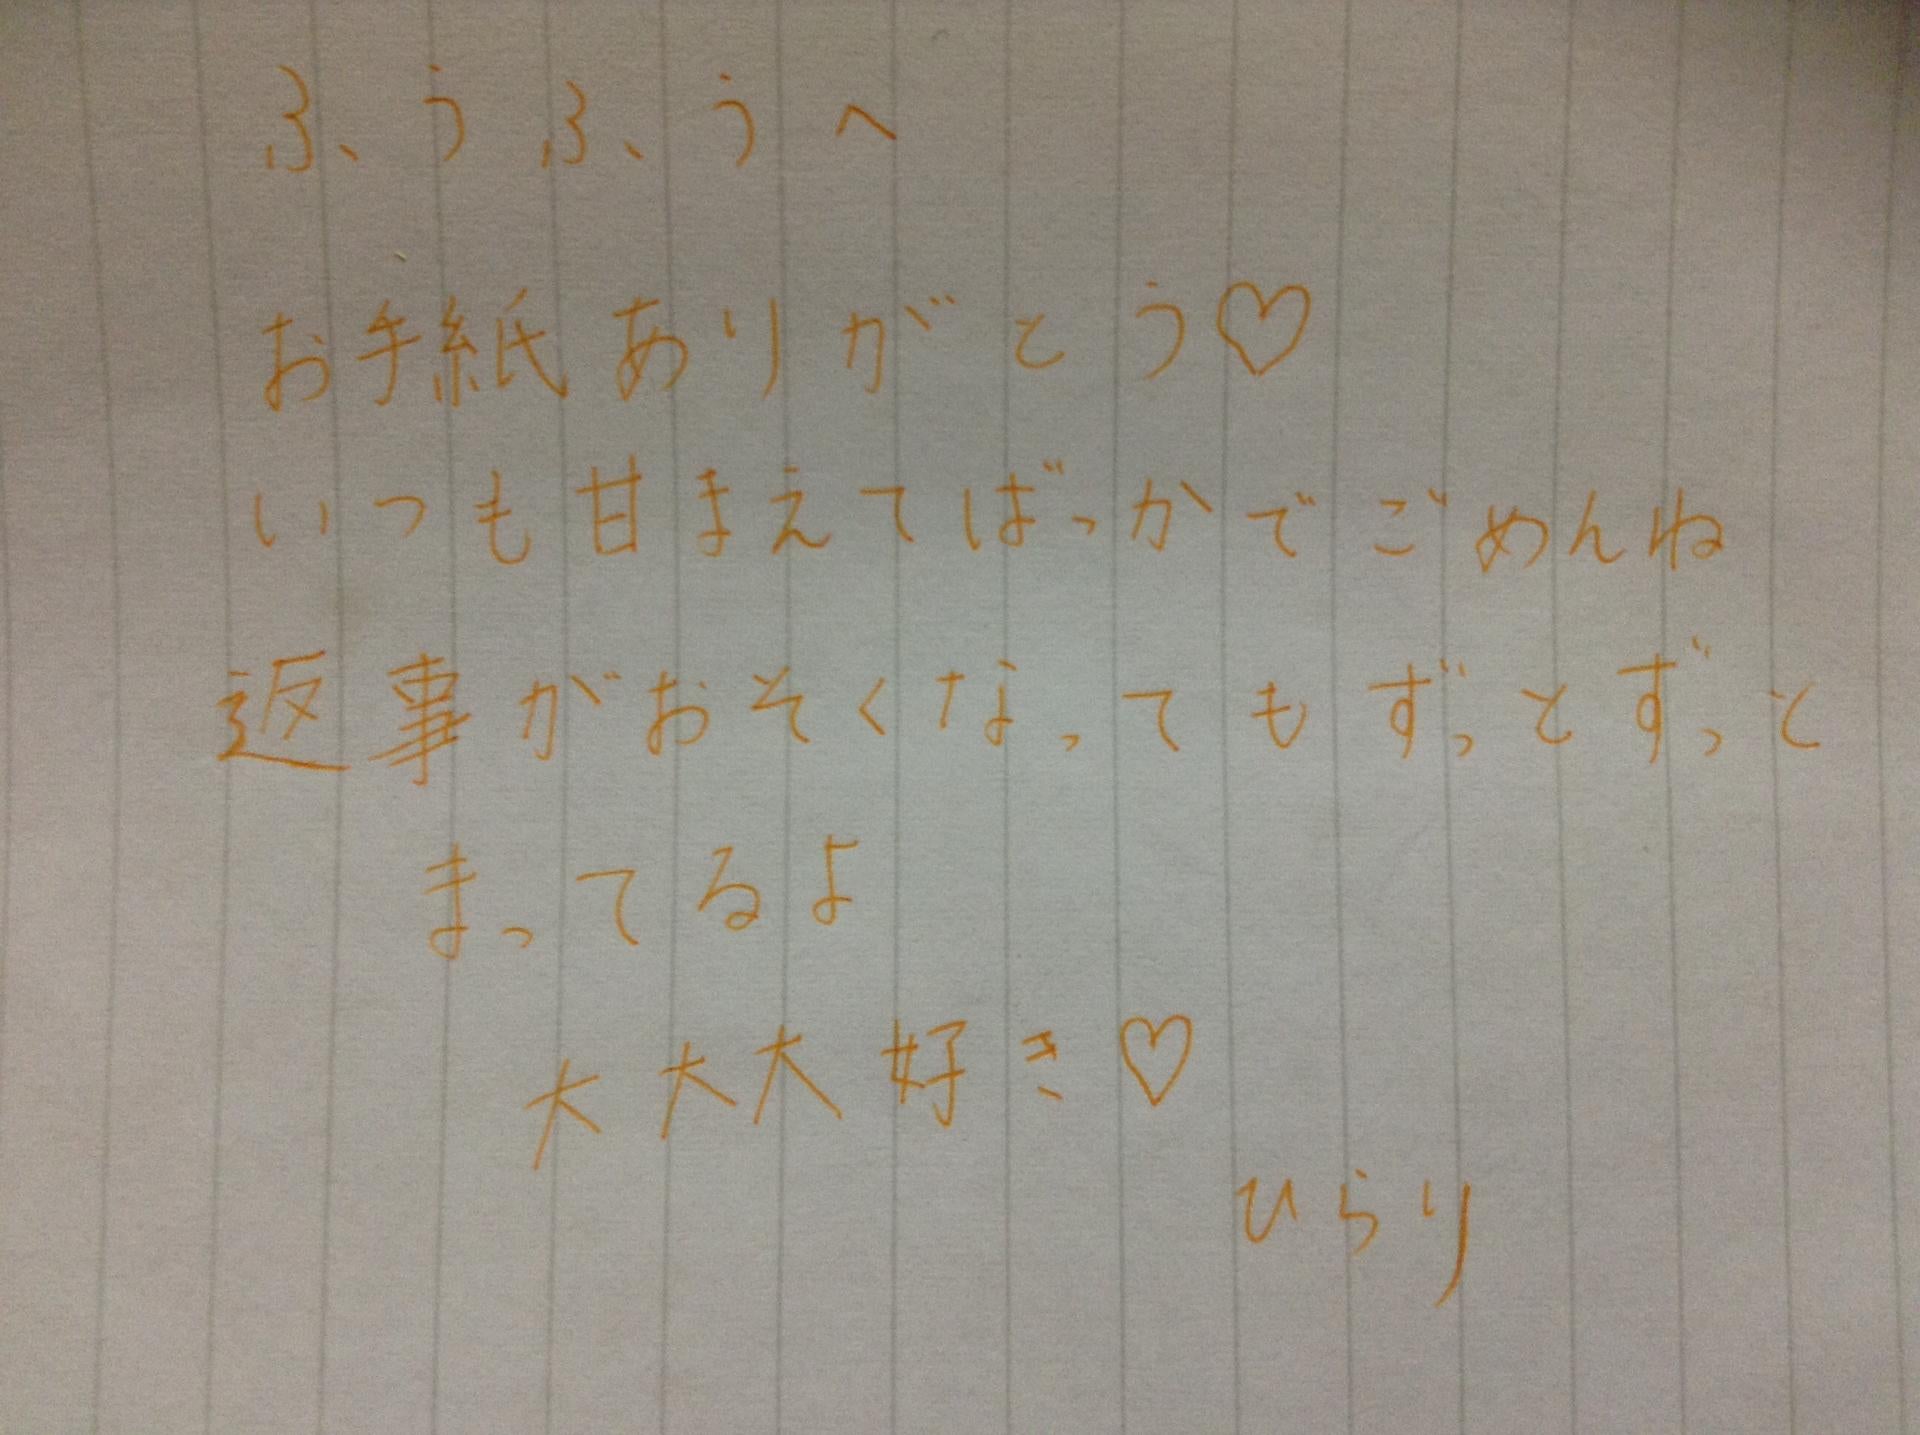 ふうふうへ
お手紙ありがとう♡
いつも甘まえてばっかでごめんね
返事がおそくなってもずっとずっと
まってるよ
大大大好き♡
ひらり